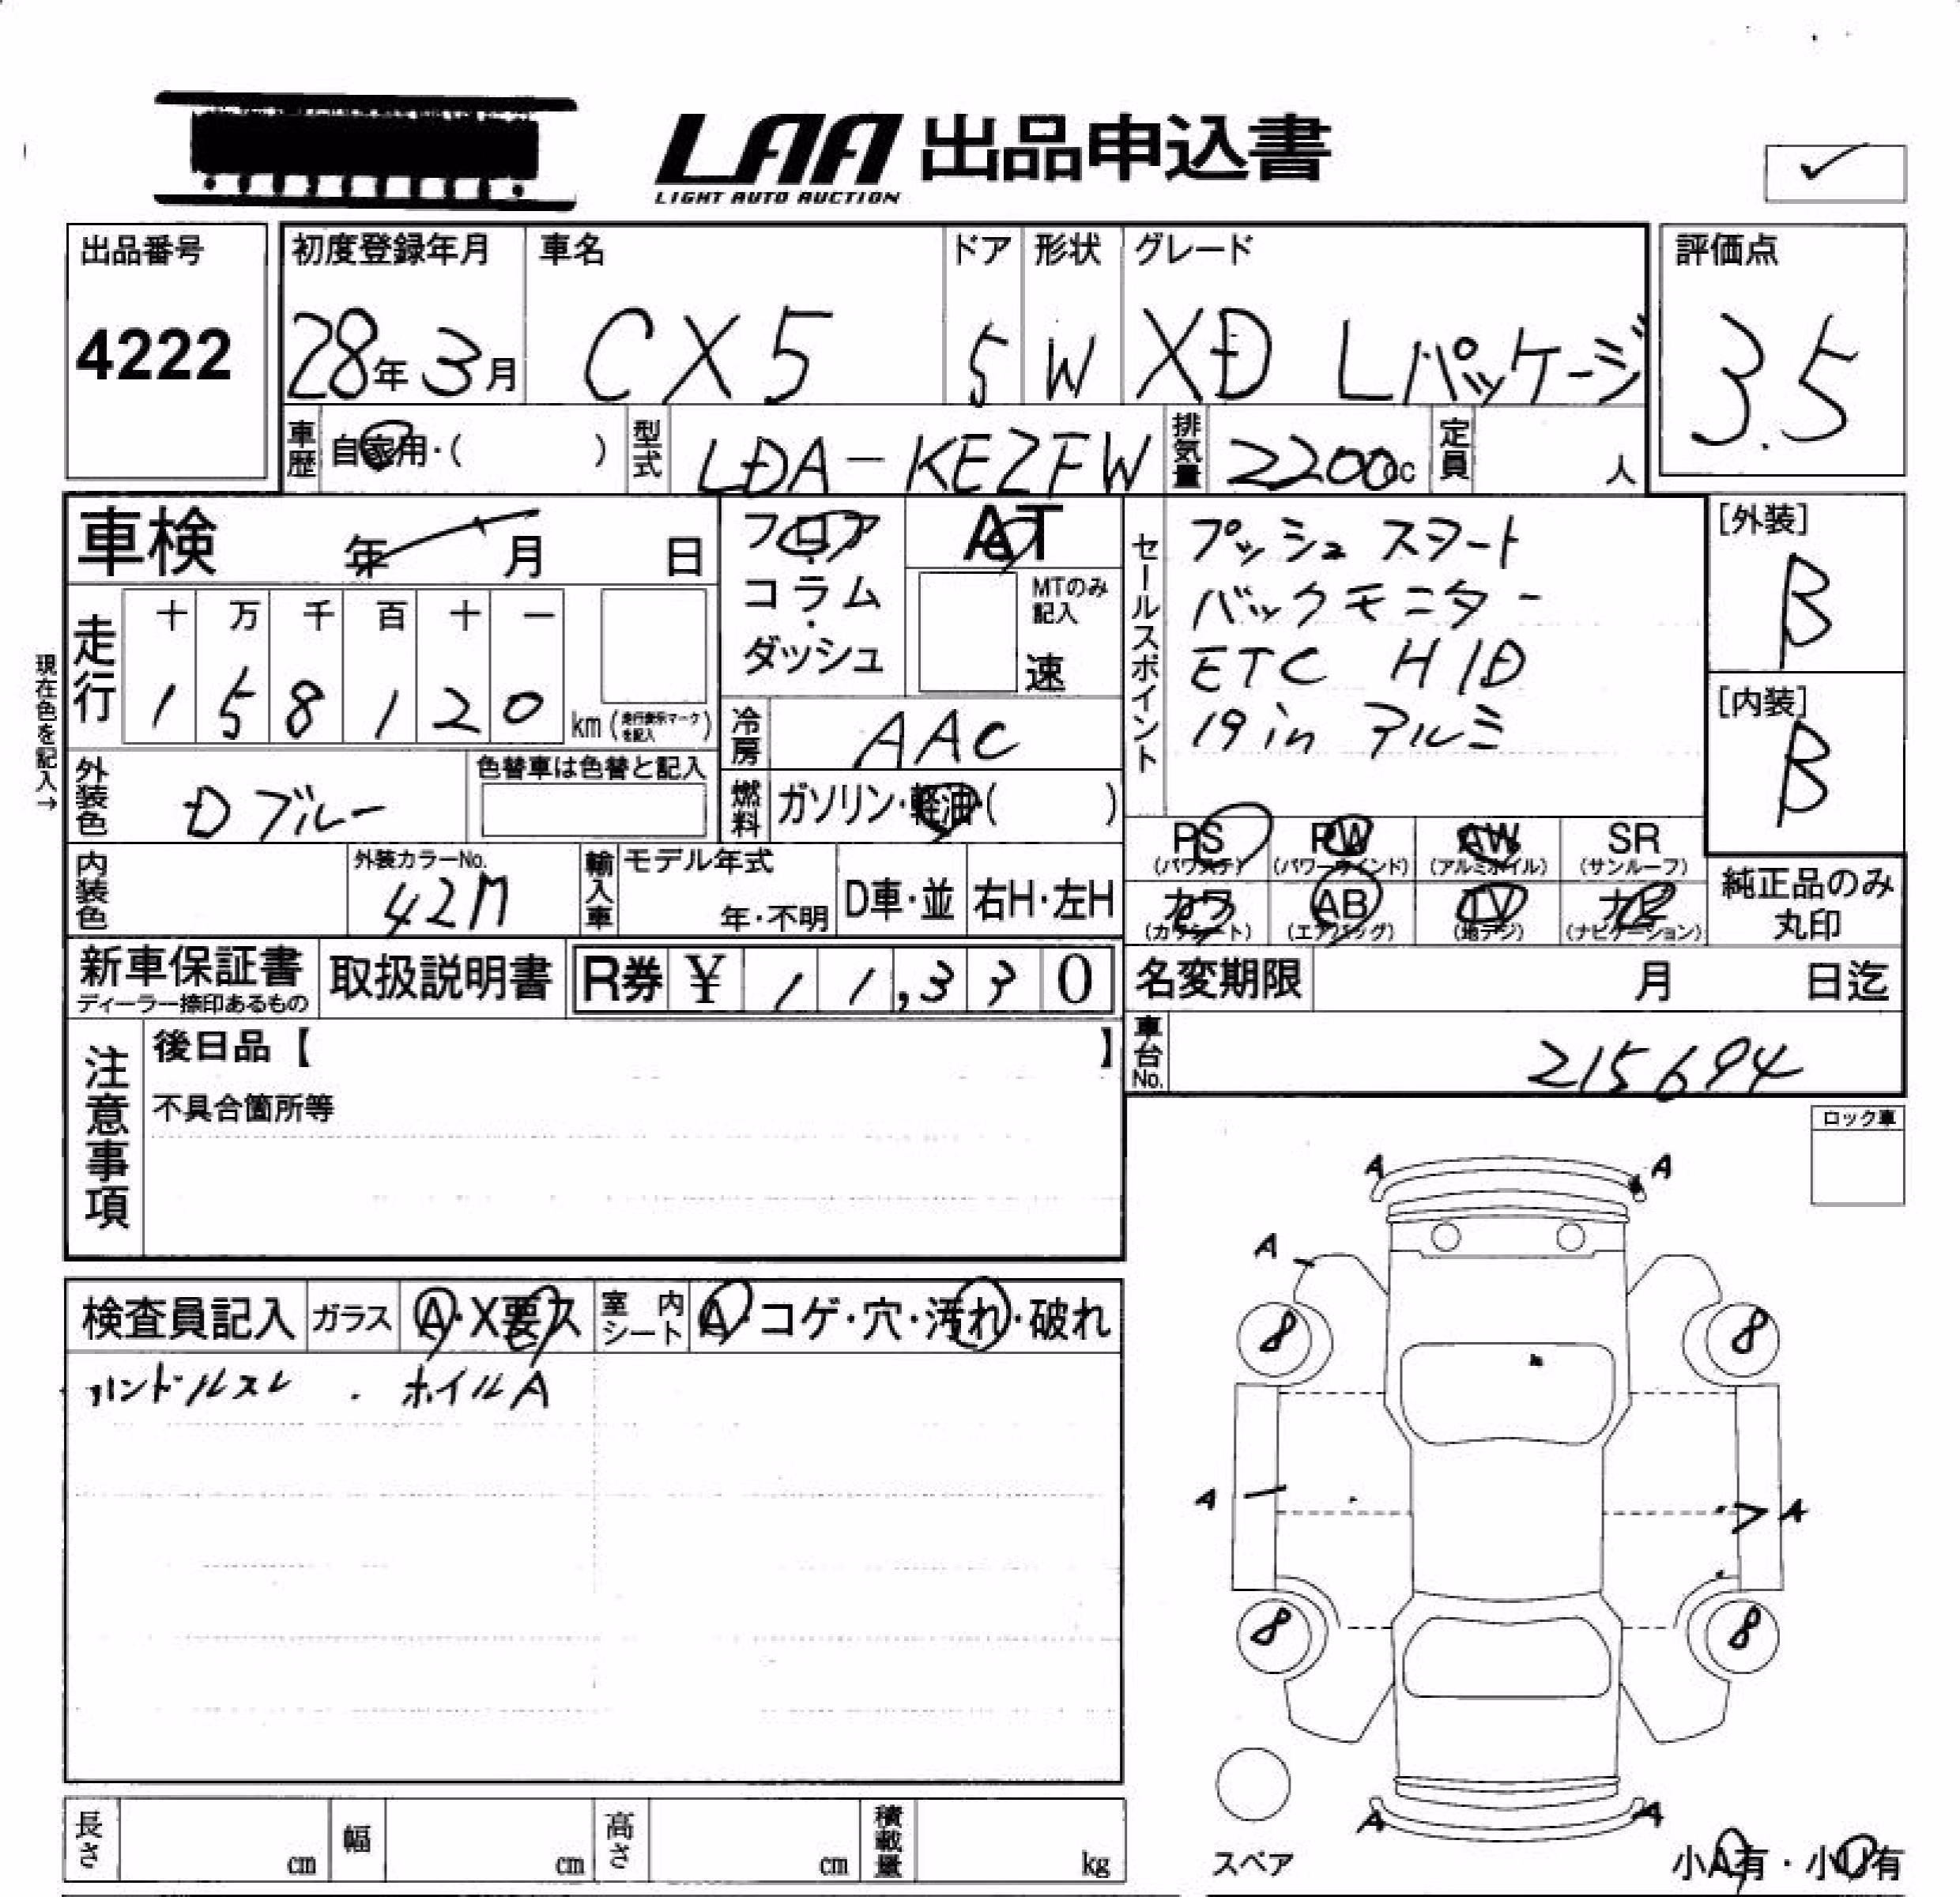 LAA 出品申込書
LIGHT AUTO AUCTION
出品番号
4222
初度登録年月
28年3月
車名
CX5
ドア
5
形状
W
グレード
XD Lパッケージ
評価点
3.5
車歴
自家用・( )
型式
LDA-KE2FW
排気量
2200cc
定員
人
車検 年 月 日
現在色を記入→
走行
十 万 千 百 十 一
1 5 8 1 2 0
km (走行表示マークを記入)
フロア
・
コラム
・
ダッシュ
AT
MTのみ
記入
速
冷房
AAC
燃料
ガソリン・軽油・( )
セールスポイント
プッシュスタート
バックモニター
ETC HID
19in アルミ
[外装]
B
[内装]
B
外装色
Dブルー
色替車は色替と記入
内装色
外装カラーNo.
42M
輸入車
モデル年式
年・不明
D車・並
右H・左H
PS
(パワステ)
PW
(パワーウインド)
AW
(アルミホイル)
SR
(サンルーフ)
カワ
(カワシート)
AB
(エアバッグ)
TV
(地デジ)
ナビ
(ナビゲーション)
純正品のみ
丸印
新車保証書
ディーラー捺印あるもの
取扱説明書
R券 ¥ 11,330
名変期限 月 日迄
車台No.
215694
注意事項
後日品【 】
不具合箇所等
ロック車
検査員記入
ガラス
A・X要ス
室内
シート
A・コゲ・穴・汚れ・破れ
ハンドルスレ . ホイルA
A A
A
8 8
A A
8 8
A A
スペア
小A有・小U有
長さ cm
幅 cm
高さ cm
積載量 kg